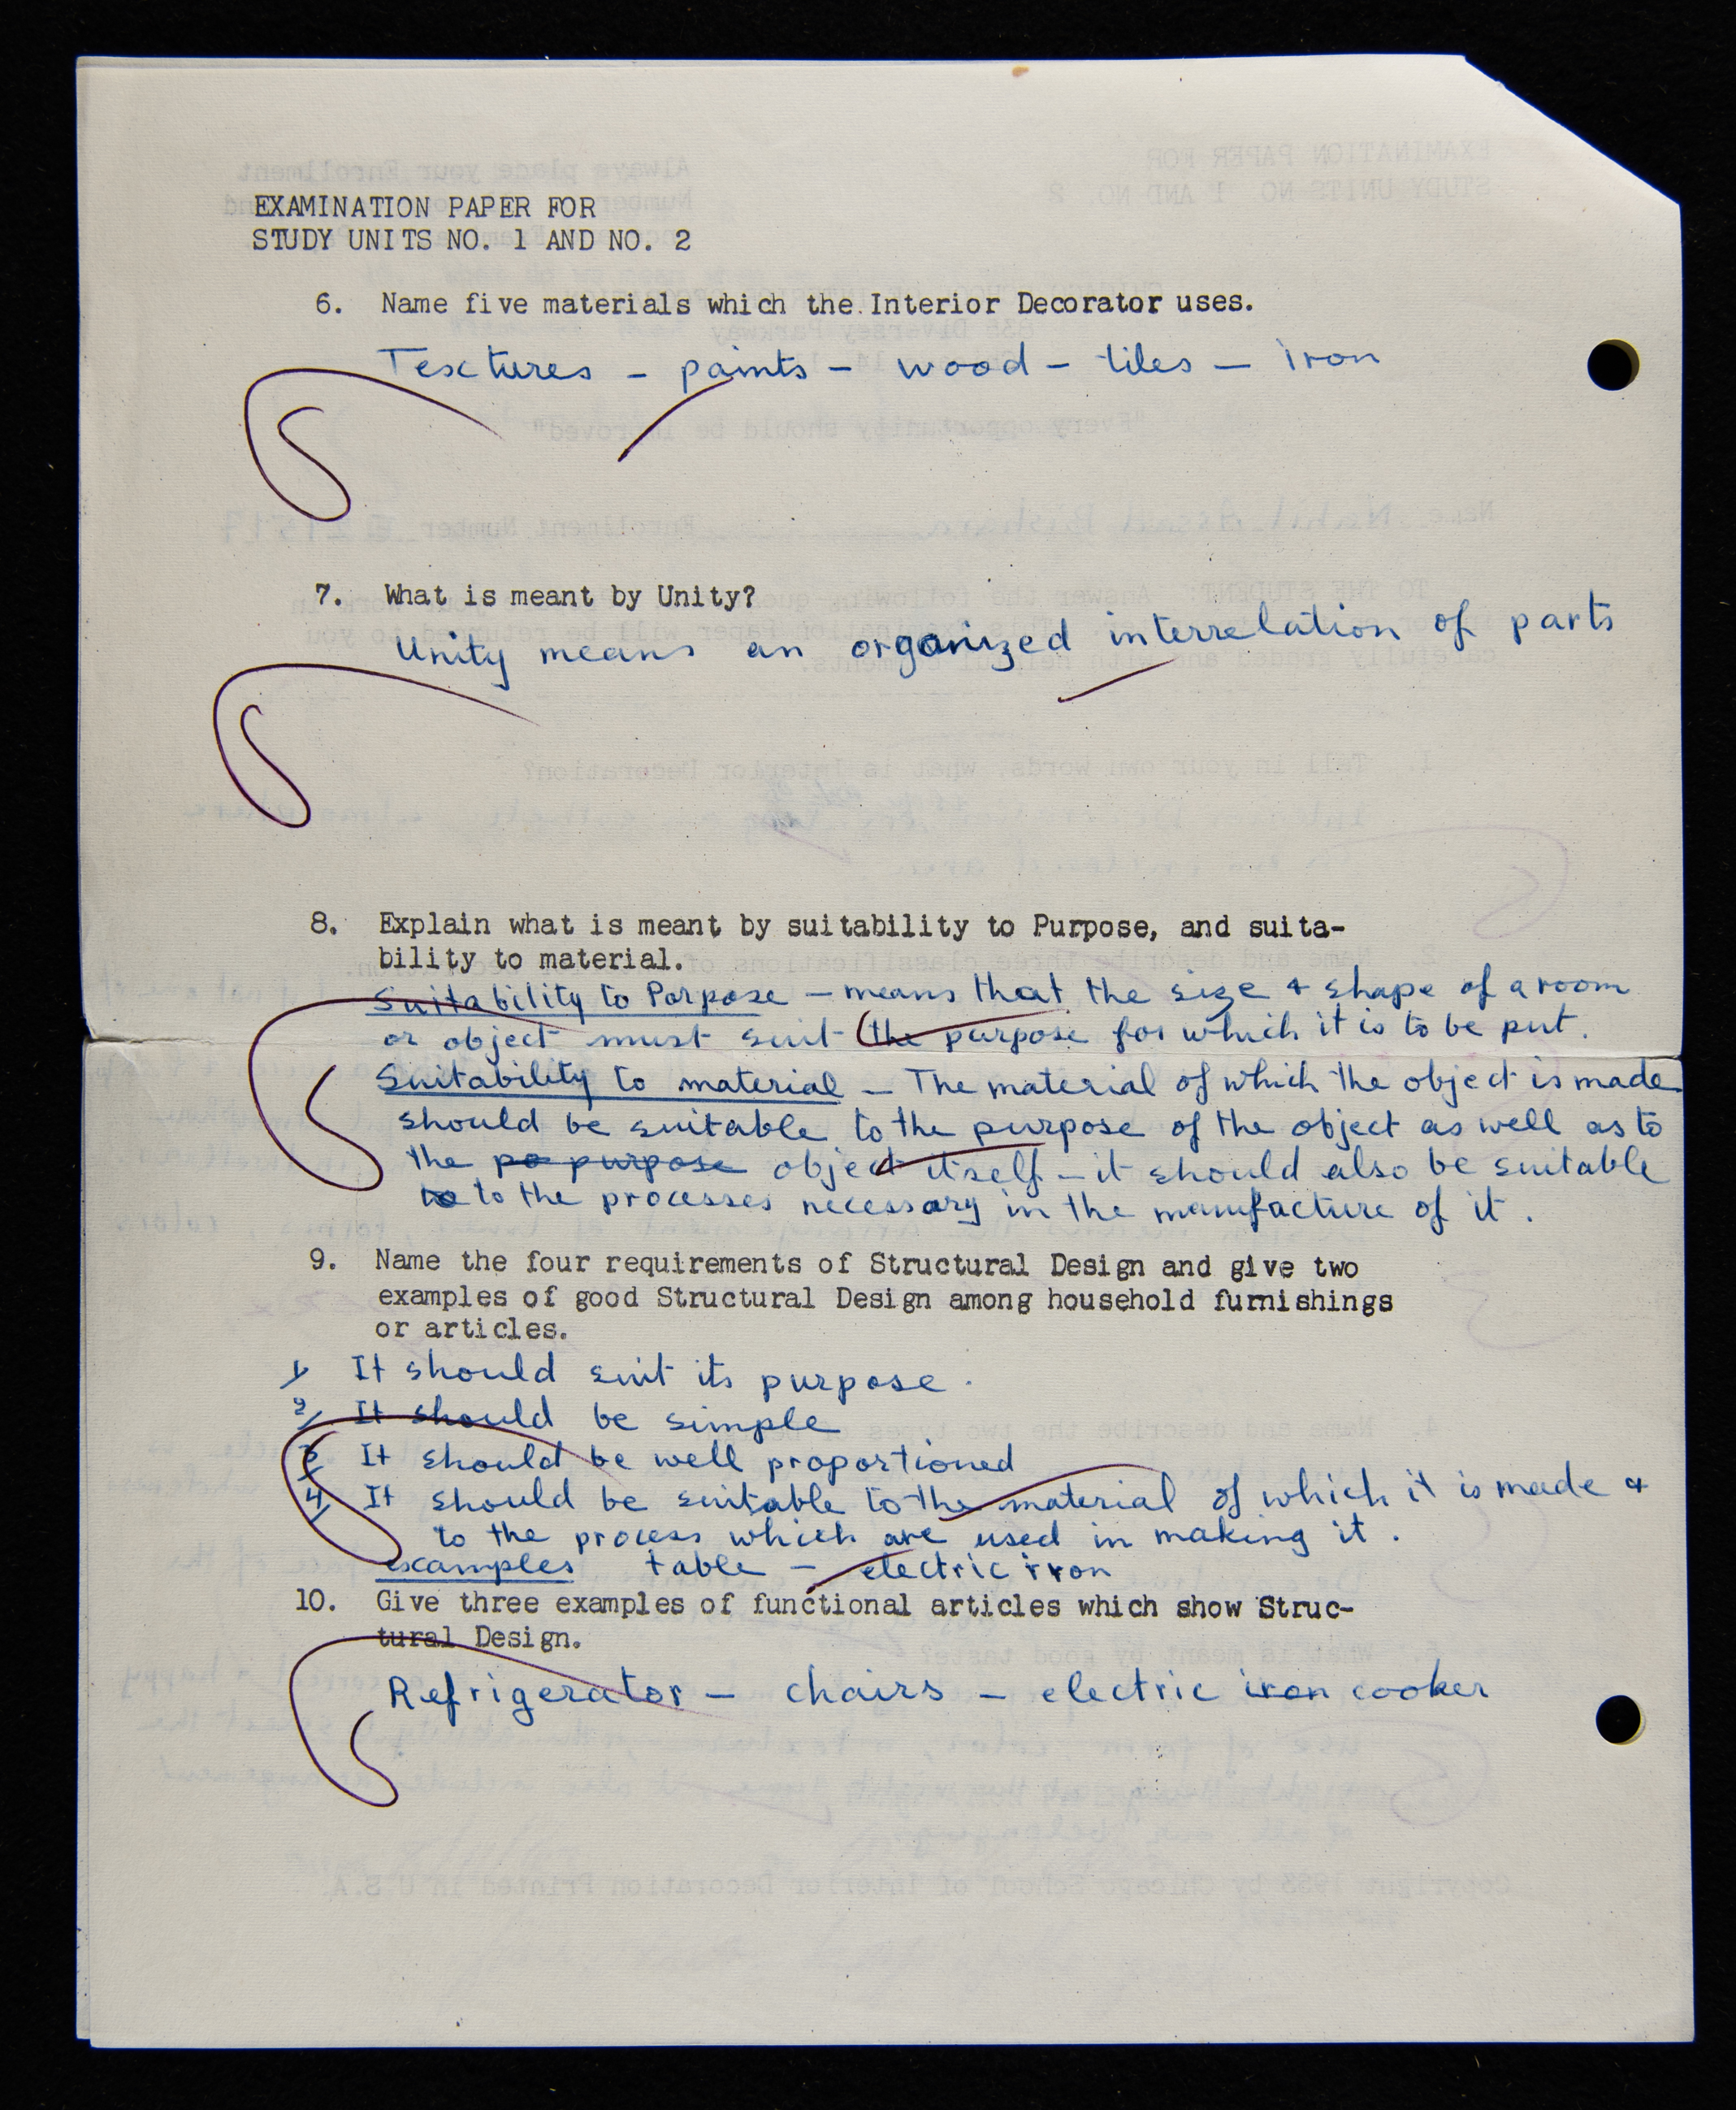 EXAMINATION PAPER FOR
STUDY UNITS NO. 1 AND NO. 2
6. Name five materials which the Interior Decorator uses.
Textures - paints - wood - tiles - iron
7. What is meant by Unity?
Unity means an organized interrelation of parts
8. Explain what is meant by suitability to Purpose, and suita-
bility to material.
Suitability to Porpose - means that the size & shape of a room
or object must suit the purpose for which it is to be put.
Suitability to material - The material of which the object is made
should be suitable to the purpose of the object as well as to
the po purpose object itself - it should also be suitable
to to the processes necessary in the manufacture of it.
9. Name the four requirements of Structural Design and give two
examples of good Structural Design among household furnishings
or articles.
1/ It should suit its purpose.
2/ It should be simple
3/ It should be well proportioned
4/ It should be suitable to the material of which it is made &
to the process which are used in making it.
examples table - electric iron
10. Give three examples of functional articles which show Struc-
tural Design.
Refrigerator - chairs - electric iron cooker